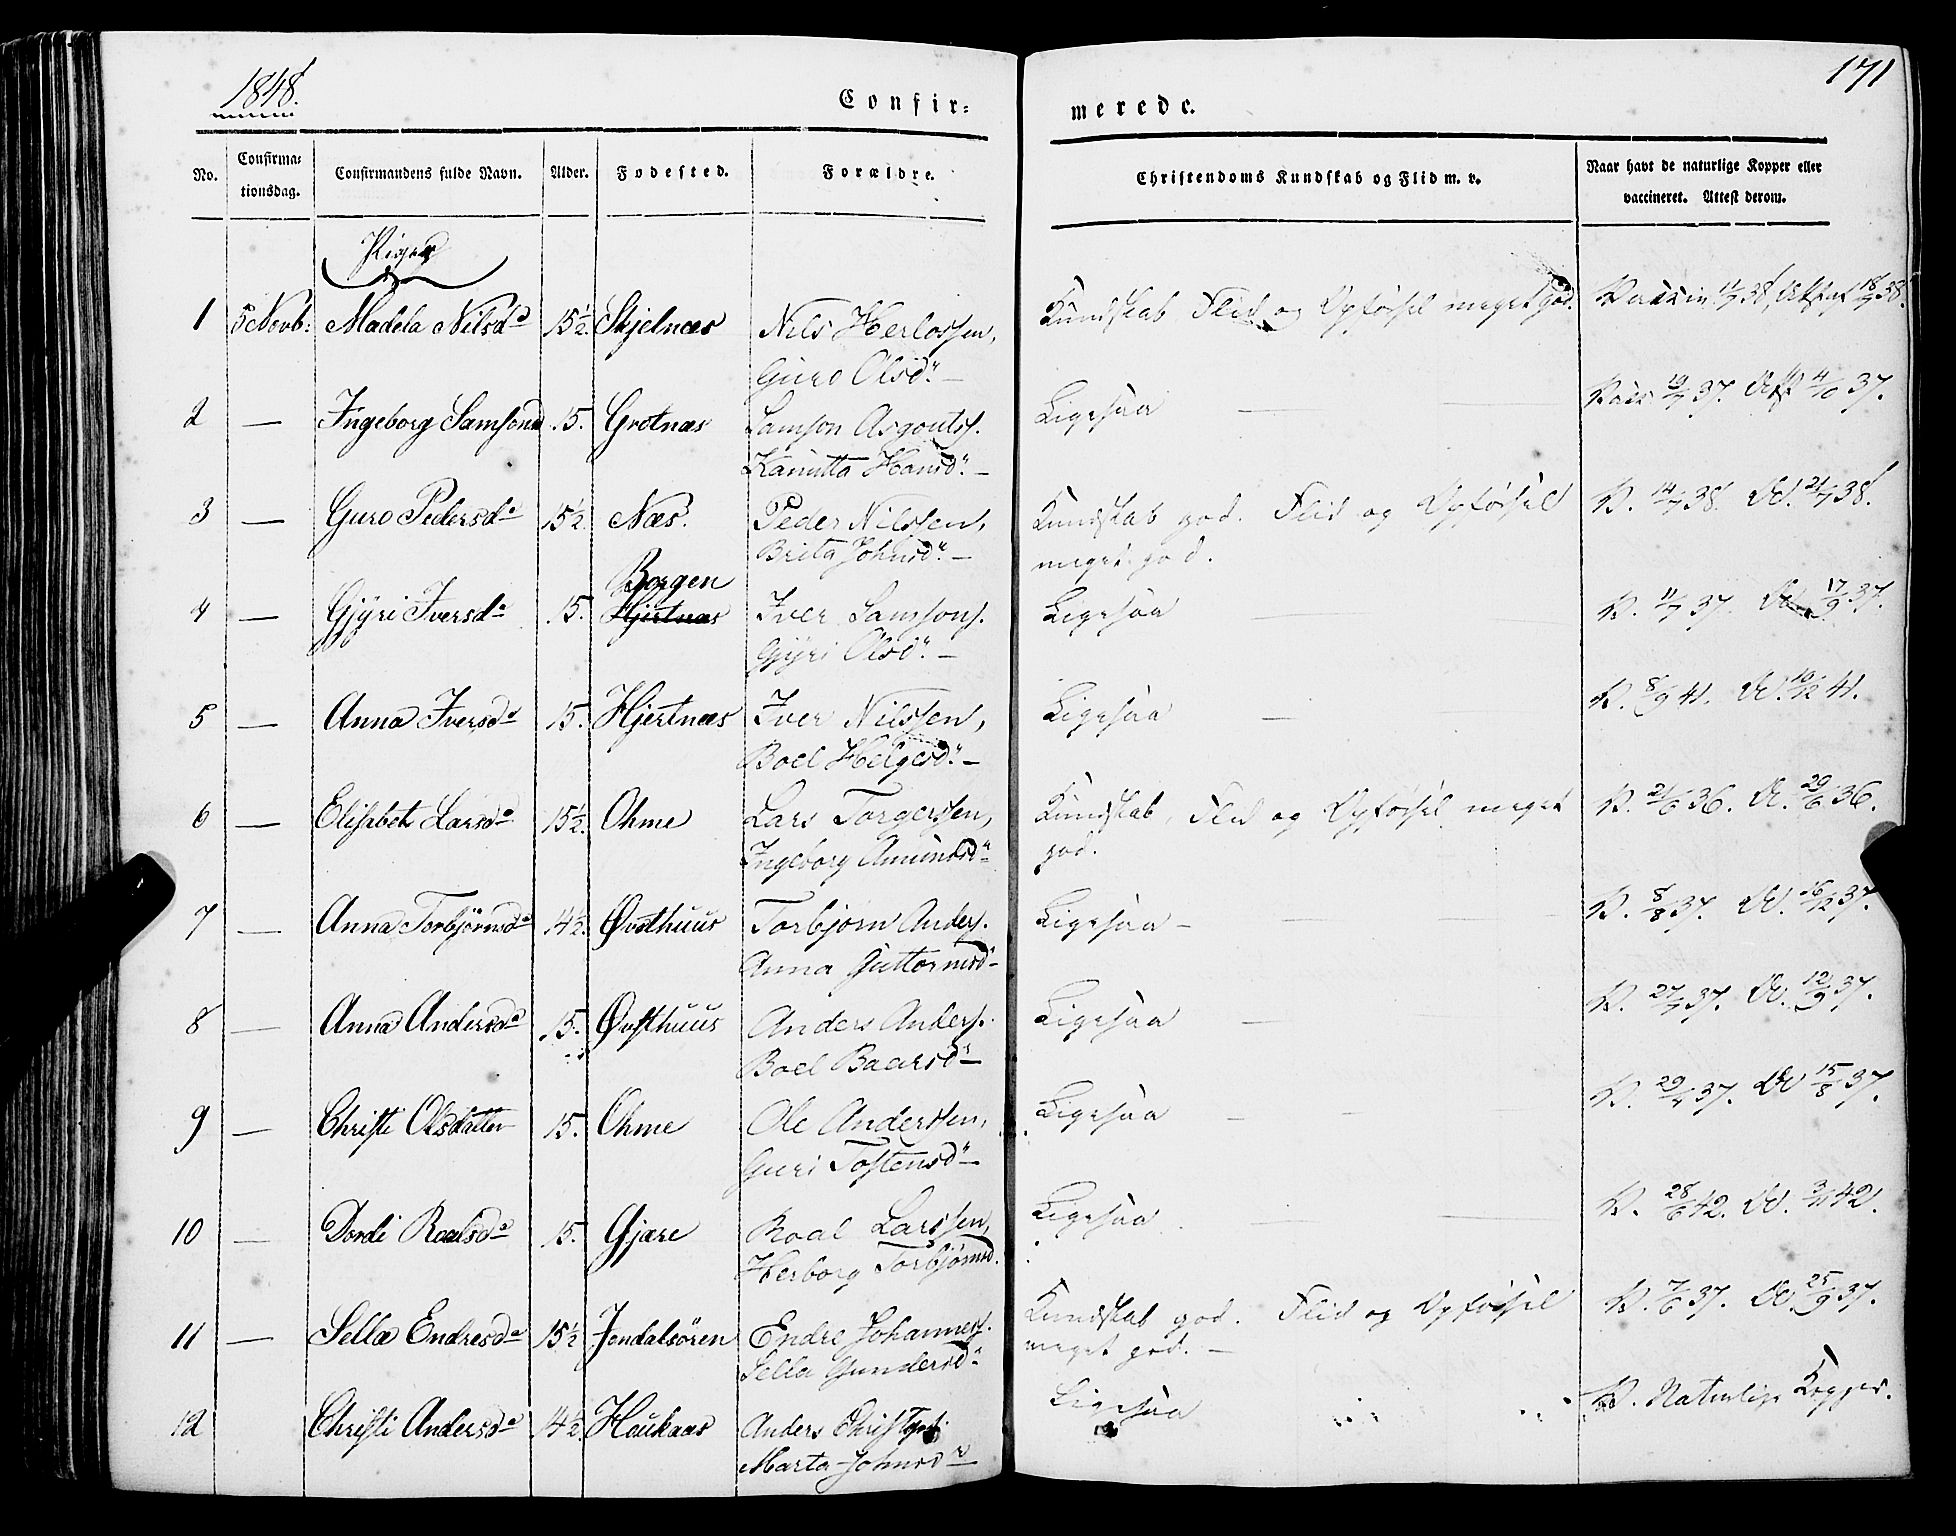 1848.
171
Confir=
merede.
No.
Confirma=
tionsdag.
Confirmandens fulde Navn.
Alder.
Fødested.
Forældre.
Christendoms Kundskab og Flid m. v.
Naar havt de naturlige Kopper eller
vaccineret. Attest derom.
Piger
1 5 Novb: Madela Nilsd. 15½ Skjelnæs Nils Herlossen, Kundskab, Flid og Opførsel meget god. 11/7 38, Attest 38.
Guro Olsd. —
2 — Ingeborg Samsond. 15. Grotnæs Samson Asgouts. Ligesaa — — 19/7 37. Att 4/10 37.
Kanutta Hansd. —
3 — Guro Pedersd. 15½ Næs. Peder Nilssen, Kundskab god. Flid og Opførsel V. 14/7 38. A. 21/7 38.
Brita Johnsd. — meget god.
Borgen
4 — Gjyri Iversd. 15. Hjertnæs Iver Samsons. Ligesaa — — V. 11/7 37. A. 17/9 37.
Gjyri Olsd. —
5 — Anna Iversd. 15. Hjertnæs Iver Nilssen, Ligesaa — — V. 8/9 41. A. 10/12 41.
Boel Helgesd. —
6 — Elisabet Larsd. 15½. Ohme Lars Torgerssen, Kundskab, Flid og Opførsel meget V. 21/6 36. A. 29/6 36.
Ingeborg Amundsd. god.
7 — Anna Torbjørnsd. 14½. Øvsthuus Torbjørn Anders. Ligesaa — — — V. 8/8 37. A. 16/12 37.
Anna Guttormsd. —
8 — Anna Andersd. 15. Øvsthuus Anders Anders. Ligesaa — V. 27/7 37. A. 12/9 37.
Boel Baarsd. —
9 — Christi Olsdatter 15. Ohme Ole Anderssen, Ligesaa — V. 37. A. 15/8 37.
Guri Tostensd. —
10 — Dordi Roalsd. 15. Gjære Roal Larssen, Ligesaa — — V. 28/6 42. A. 3/11 42.
Herborg Torbjørnsd.
11 — Sella Endresd. 15½ Jondalsören Endre Johanness. Kundskab god. Flid og Opførsel V. 7/6 37. A. 25/9 37.
Sella Gundersd. meget god. —
12 Christi Andersd. 14½. Houkaas Anders Ligesaa Naturlige Kopper.
Marta Johnsd. —